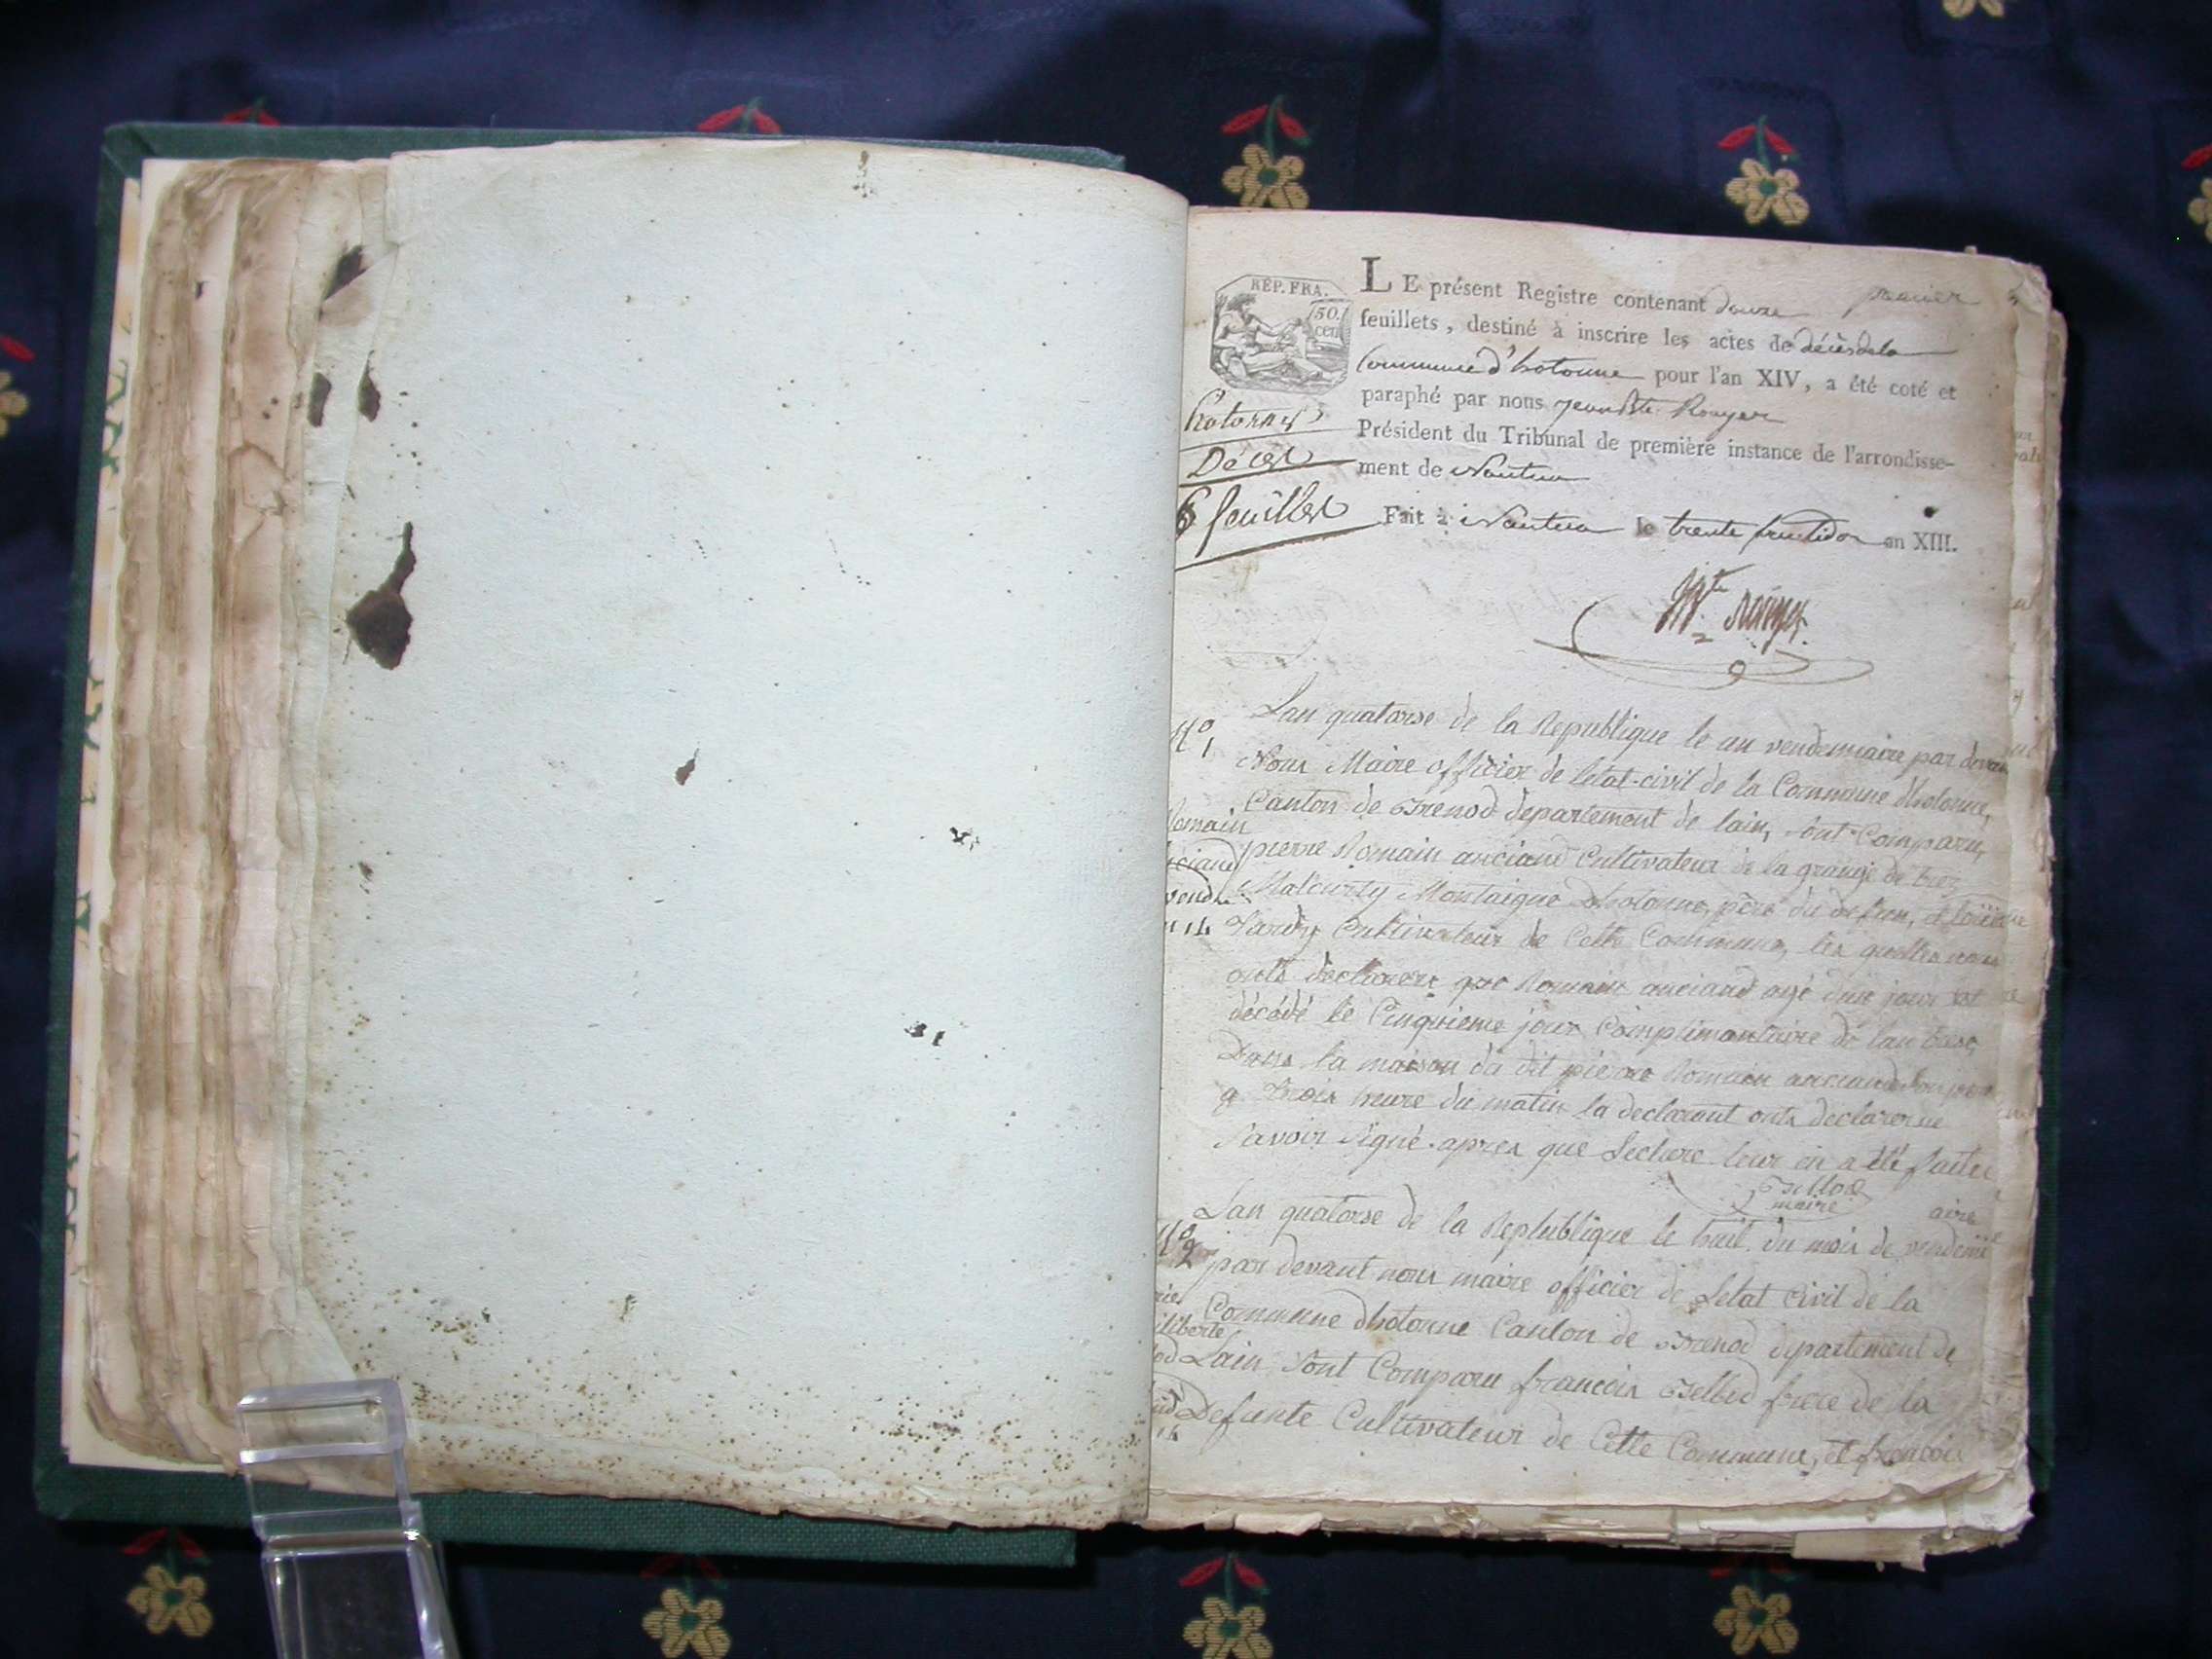 REP. FRA.
50.
cen
LE présent Registre contenant douze
premier
feuillets, destiné à inscrire les actes de décès de la
Commune d'hotonne pour l'an XIV, a été coté et
paraphé par nous jean Bte. Rouyer
Président du Tribunal de première instance de l'arrondisse-
ment de Nantua
Fait à Nantua le trente fructidor an XIII.
hotonnes
Décès
6 feuillet
Lan quatorse de la Republique le un vendemiaire par devan
Nous Maire officier de letat-civil de la Commune dhotonne,
Canton de Brenod departement de lain, sont Comparu,
pierre Romain anciand Cultivateur de la grange de
Montaigne dhotonne, père du defun, et
Tardy Cultivateur de Cette Commune, les quelles nous
onts declarere que Romain anciand agé dun jour est
décédé le Cinquieme jour Complimantaire de lan trese
Dans la maison du dit pierre Romain anciand son pere
a trois heure du matin la declarant onts declarer ne
Savoir Signé. apres que Lecture leur en a été faite
maire
No 1
Romain
anciand
vend
14
Lan quatorse de la Replublique le huit du mois de vendemi
aire
par devant nous maire officier de Letat Civil de la
Commune dhotonne Canton de Brenod departement de
Lain Sont Comparu francois Belliod frere de la
Defunte Cultivateur de Cette Commune, et francois
No 2